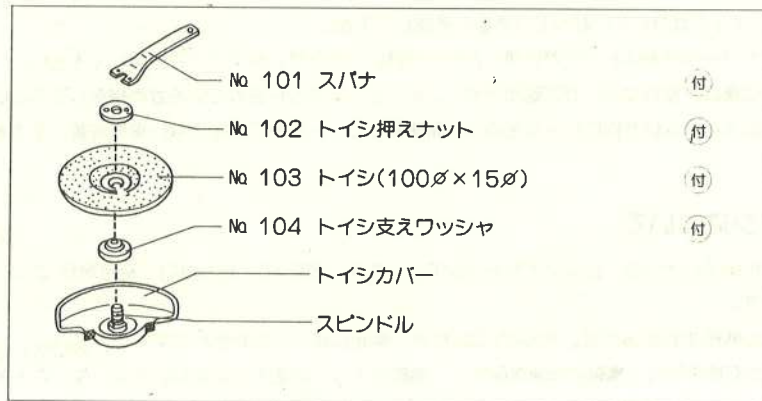 № 101 スパナ 付
№ 102 トイシ押えナット 付
№ 103 トイシ(100∅×15∅) 付
№ 104 トイシ支えワッシャ 付
トイシカバー
スピンドル